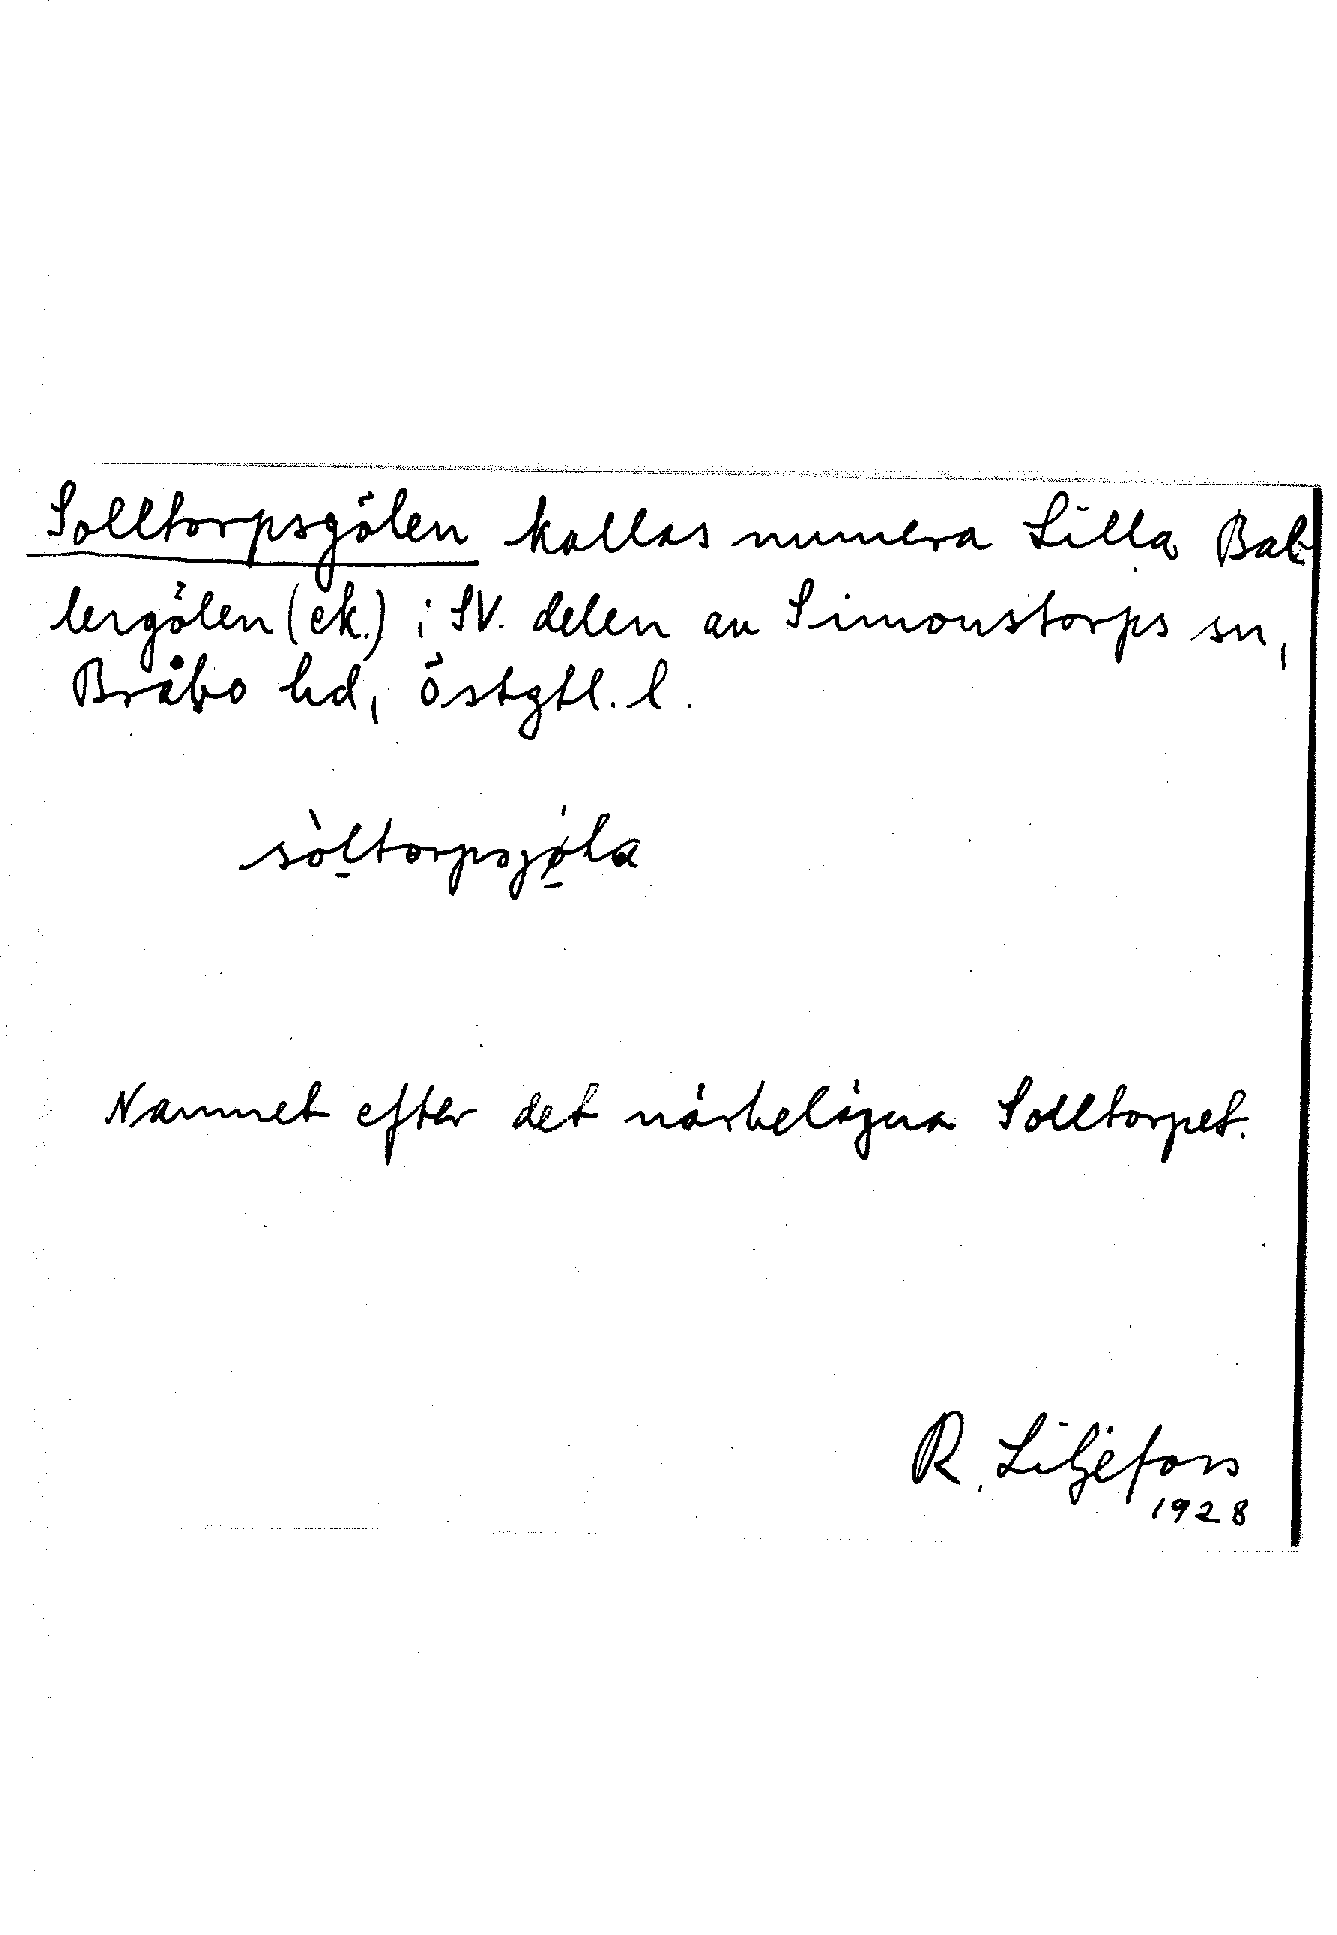 Solltorpsgölen kallas numera Lilla Bal-
lergölen (ek.) i SV. delen av Simonstorps sn,
Bråbo hd, Östgtl. l.
sòltorpsjøla
Namnet efter det närbelägna Solltorpet.
R. Liljefors
1928